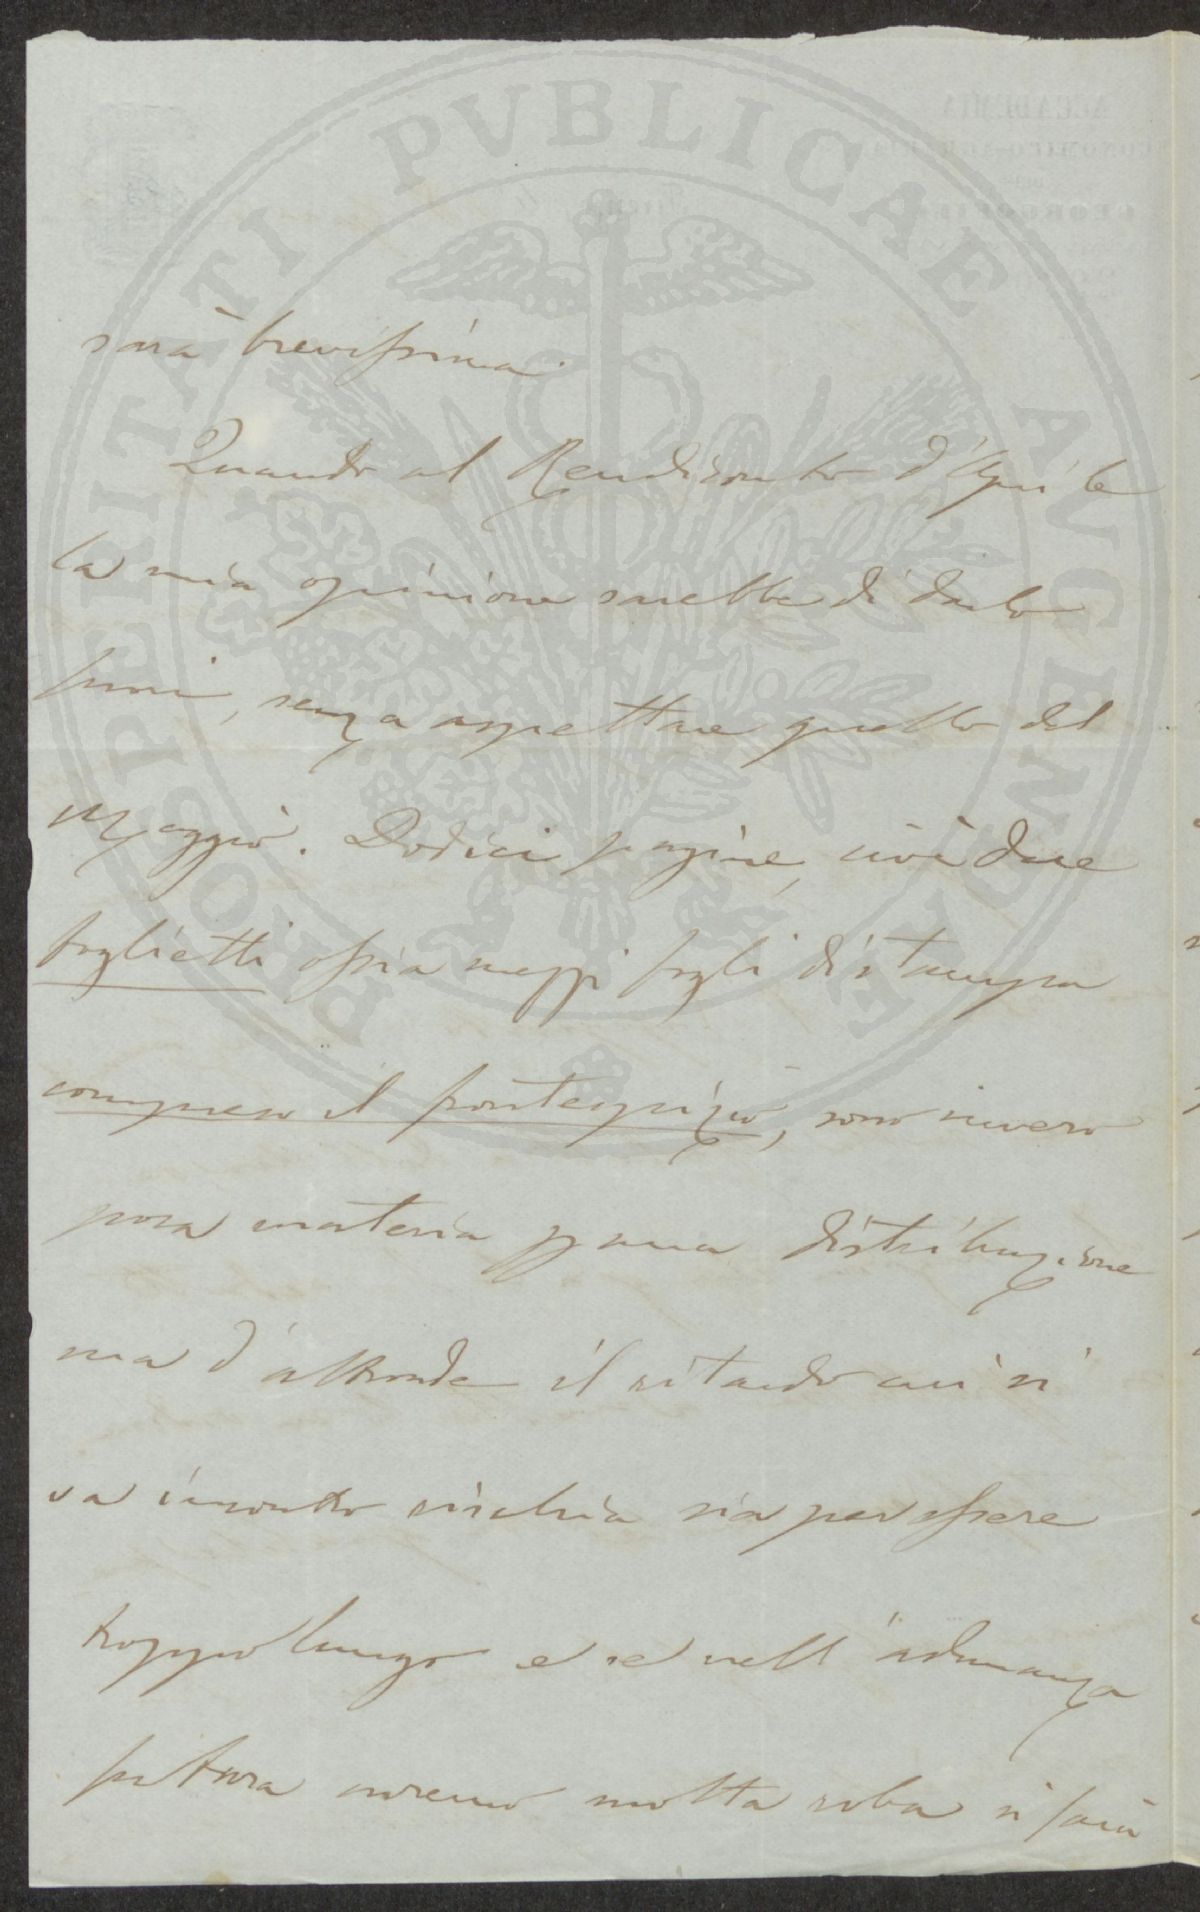 PROSPERITATI PVBLICAE AVGENDAE
sarà brevissima.
Quando al Rendiconto d'Aprile
la mia opinione sarebbe di darlo
fuori, senza aspettare quello del
Maggio. Dodici pagine, cioè due
foglietti ossia mezzi fogli di stampa
compreso il frontespizio, sono invero
poca materia p una distribuzione
ma d'altronde il ritardo cui si
va incontro rischia sia per essere
troppo lungo e se nell'adunanza
futura avremo molta roba si farà